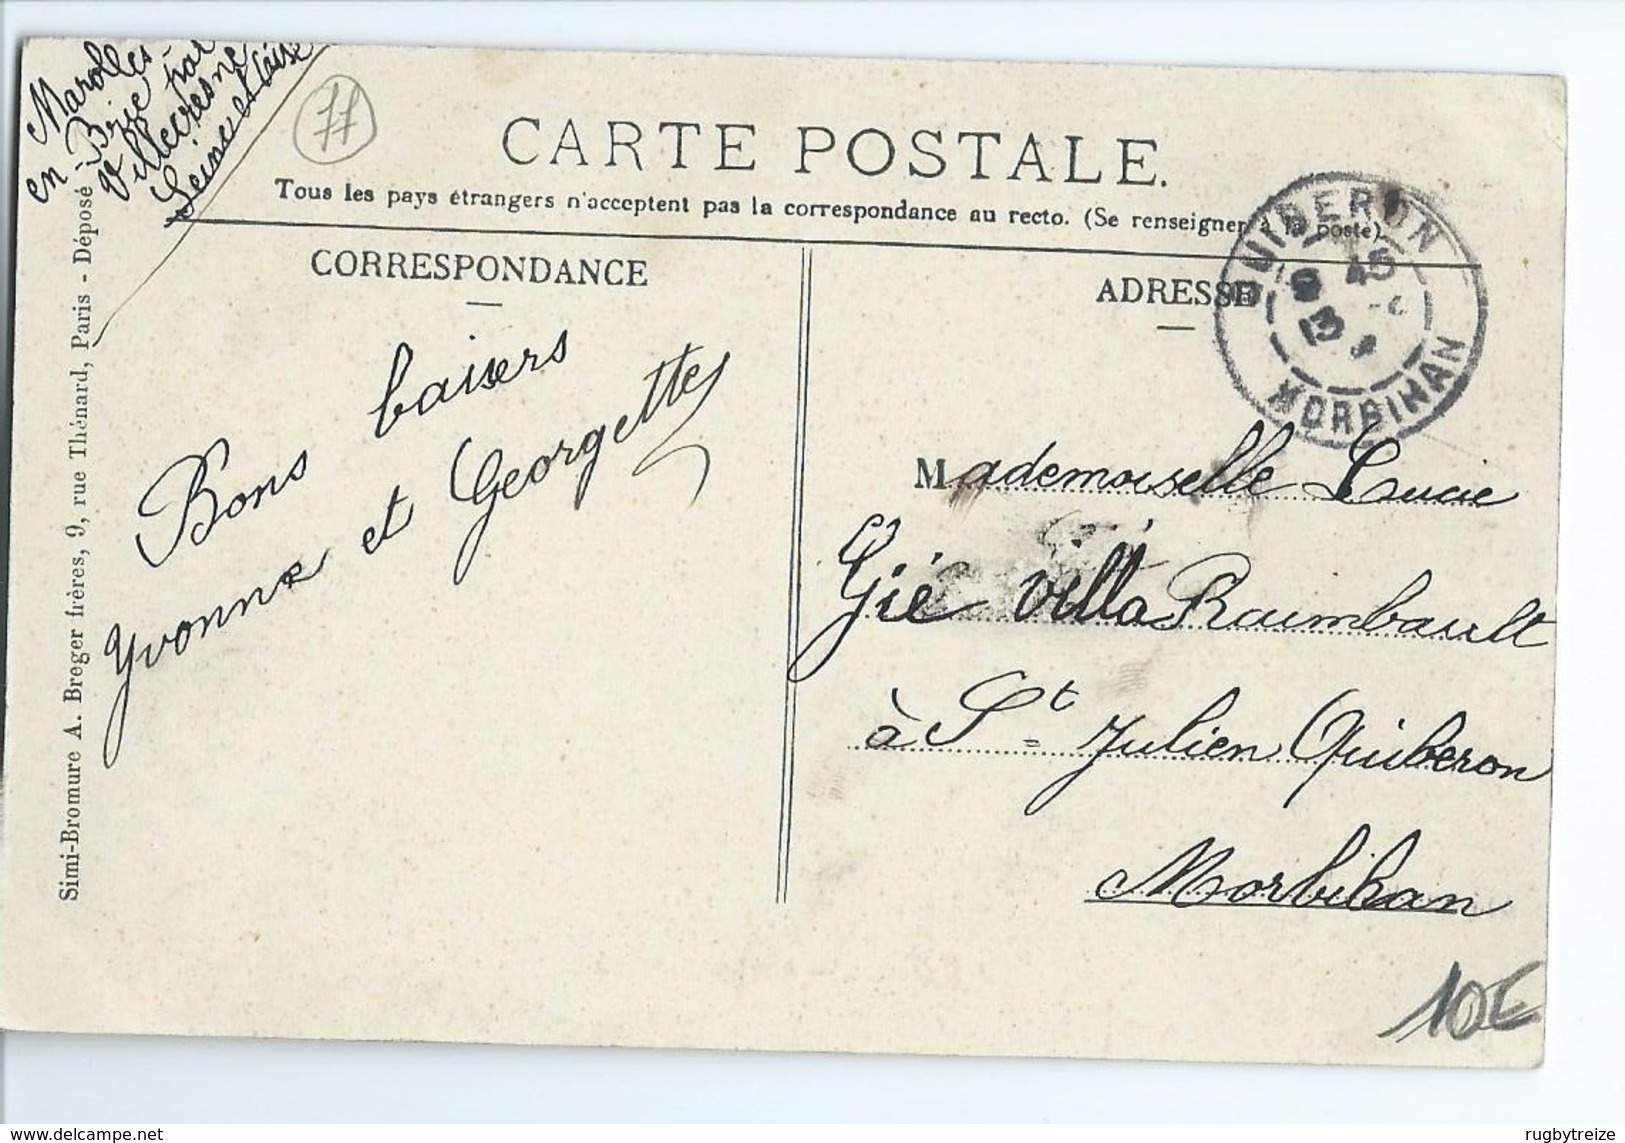 Marolles-
en-Brie par
Villecresne
Seine et Oise
77
CARTE POSTALE.
Tous les pays étrangers n'acceptent pas la correspondance au recto. (Se renseigner à la poste)
CORRESPONDANCE
ADRESSE
QUIBERON
MORBIHAN
Bons baisers
Yvonne et Georgette
Mademoiselle Lucie
Gié villa Raimbault
à St Julien Quiberon
Morbihan
10€
Simi-Bromure A. Breger frères, 9, rue Thénard, Paris - Déposé
www.delcampe.net
rugbytreize